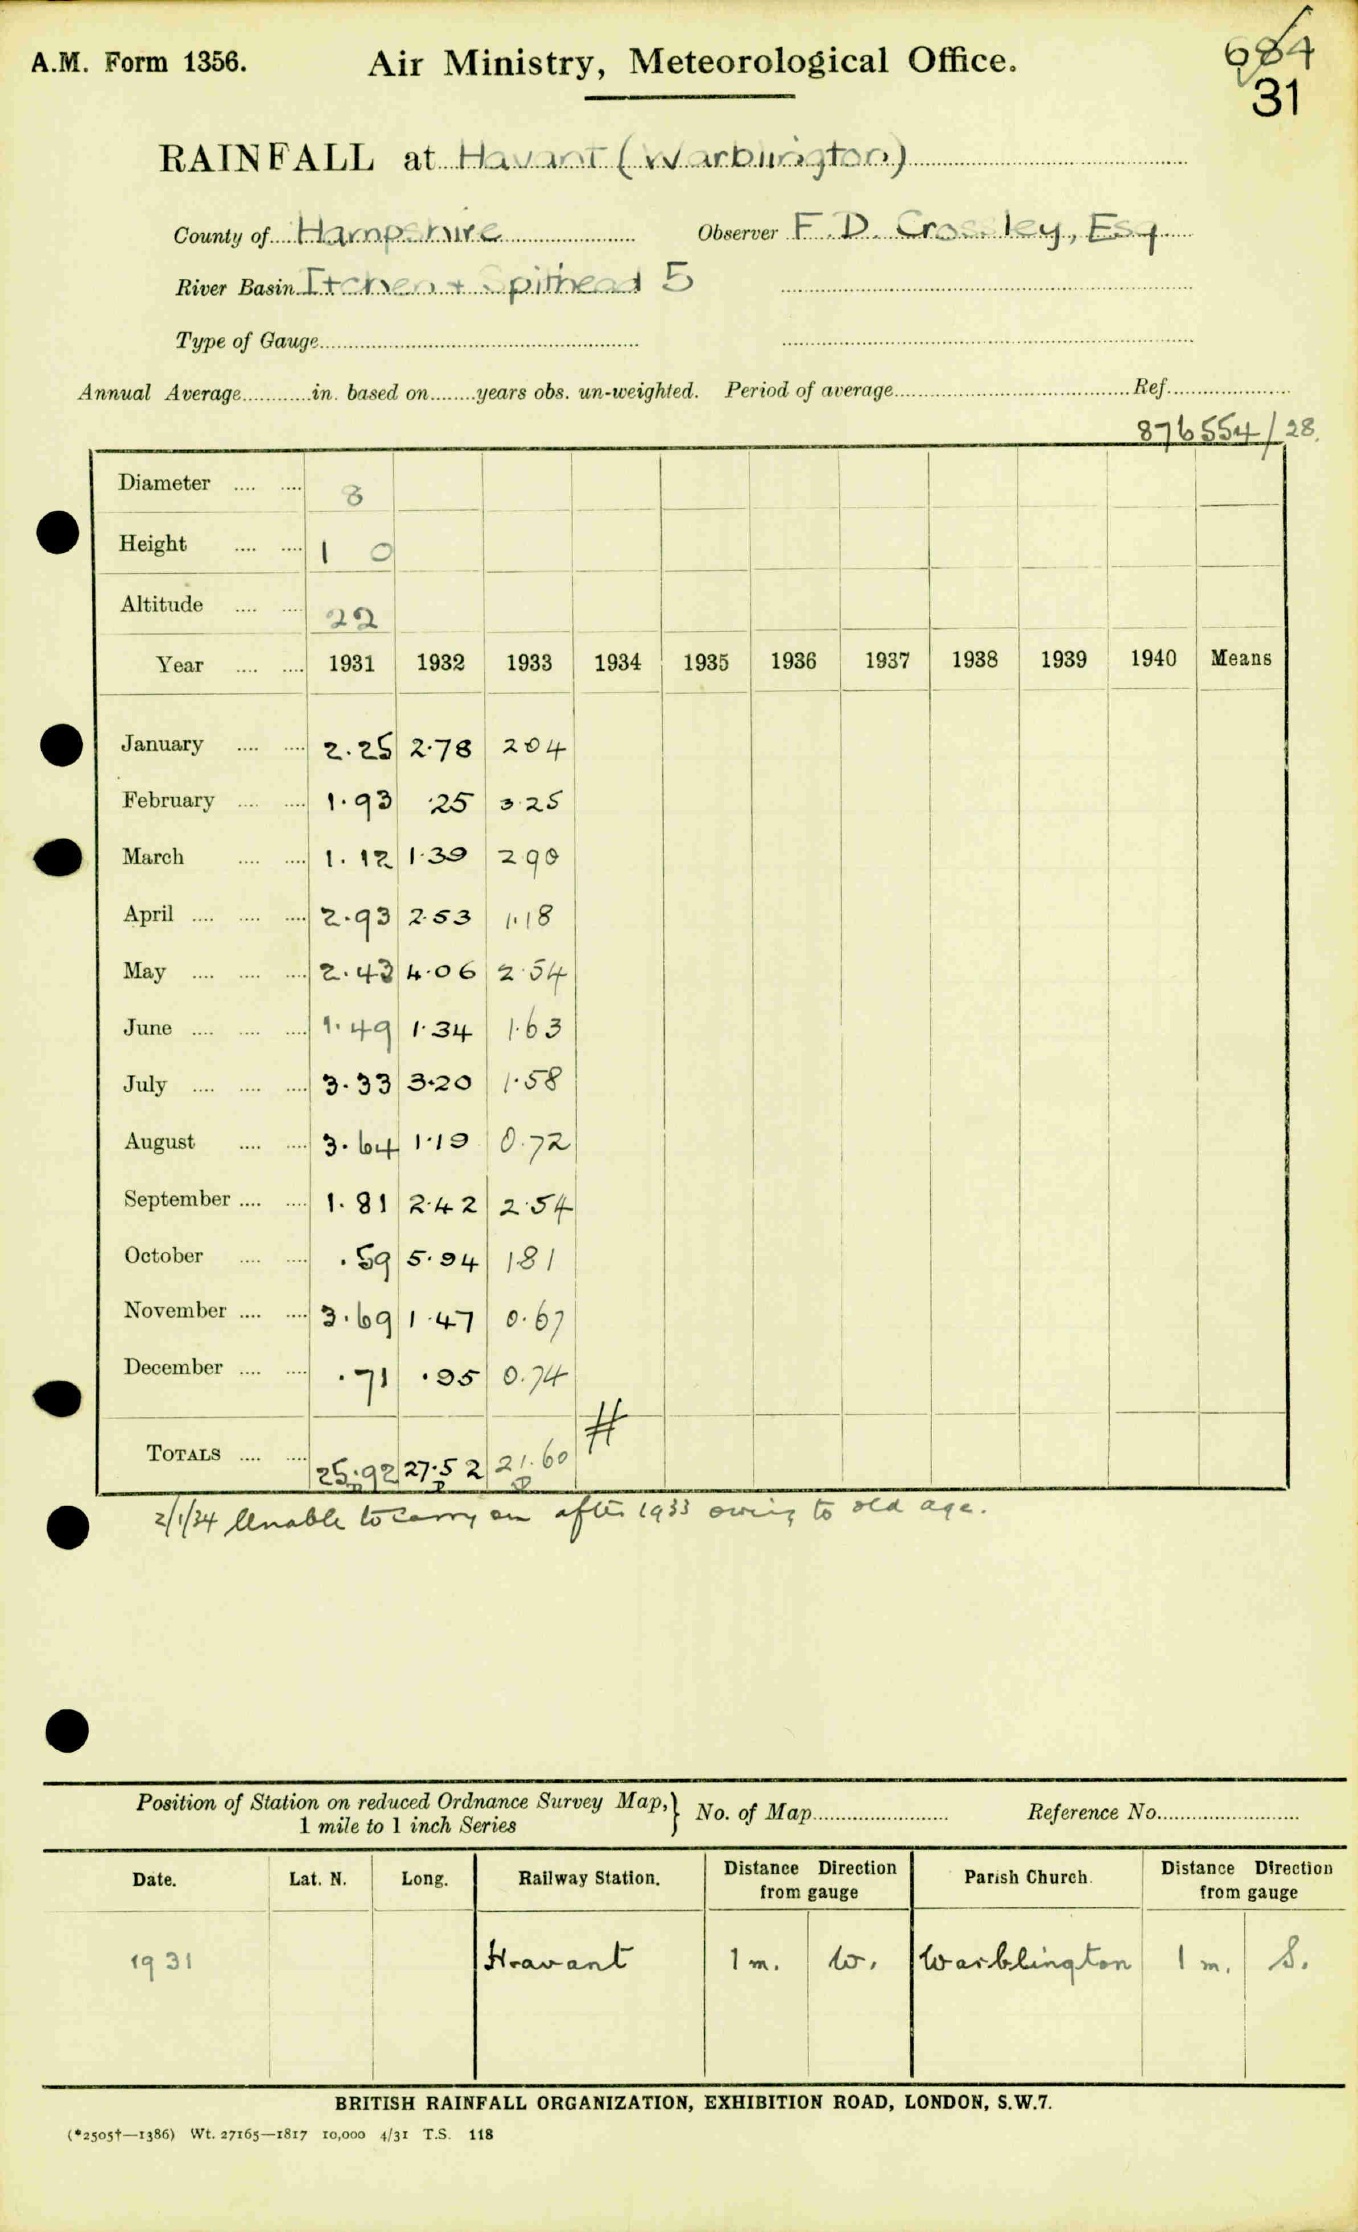 A.M. Form 1356. Air Ministry, Meteorological Office. 684
31
RAINFALL at Havant (Warblington)
County of Hampshire Observer F. D. Crossley, Esq
River Basin Itchen + Spithead 5
Type of Gauge
Annual Average in. based on years obs. un-weighted. Period of average Ref.
876554/28.
Diameter 8
Height 1 0
Altitude 22
Year 1931 1932 1933 1934 1935 1936 1937 1938 1939 1940 Means
January 2.25 2.78 2.04
February 1.93 .25 3.25
March 1.12 1.39 2.90
April 2.93 2.53 1.18
May 2.43 4.06 2.54
June 1.49 1.34 1.63
July 3.33 3.20 1.58
August 3.64 1.19 0.72
September 1.81 2.42 2.54
October .59 5.94 1.81
November 3.69 1.47 0.67
December .71 .95 0.74
#
TOTALS 25.92 27.52 21.60
2/1/34 Unable to carry on after 1933 owing to old age.
Position of Station on reduced Ordnance Survey Map,} No. of Map Reference No.
1 mile to 1 inch Series
Date. Lat. N. Long. Railway Station. Distance Direction from gauge Parish Church. Distance Direction from gauge
1931 Havant 1 m. W. Warblington 1 m. S.
BRITISH RAINFALL ORGANIZATION, EXHIBITION ROAD, LONDON, S.W.7.
(*2505†—1386) Wt. 27165—1817 10,000 4/31 T.S. 118